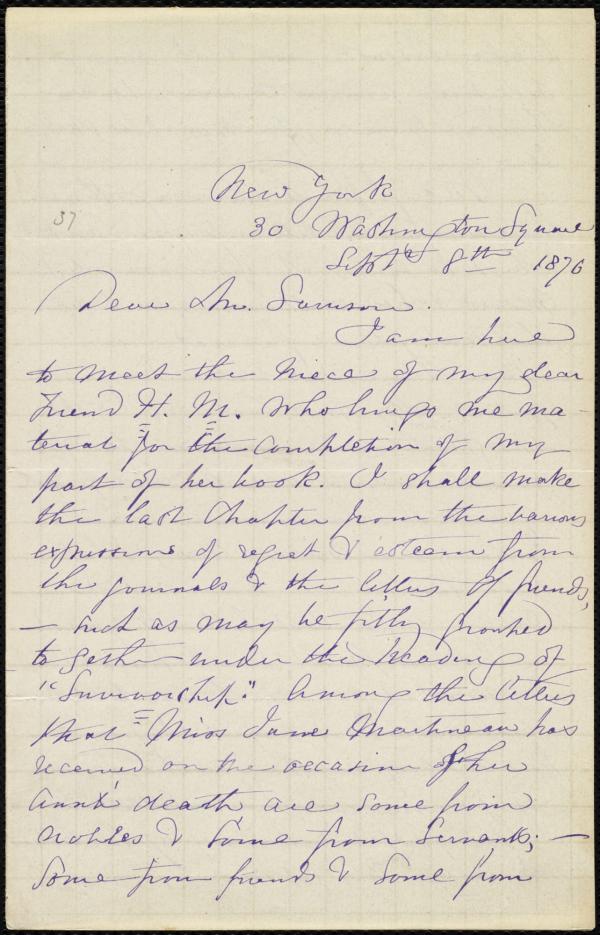 New York
37
30 Washington Square
Sept. 8th 1876
Dear Mr. Garrison.
I am here
to meet the niece of my dear
friend H. M. who brings me ma-
terial for the completion of my
part of her book. I shall make
the last chapter from the various
expressions of regret & esteem from
the journals & the letters of friends,
— such as may be fitly grouped
together under the heading of
"Survivorship." Among the letters
that Miss Jane Martineau has
received on the occasion of her
aunt's death are some from
nobles & some from servants; —
some from friends & some from